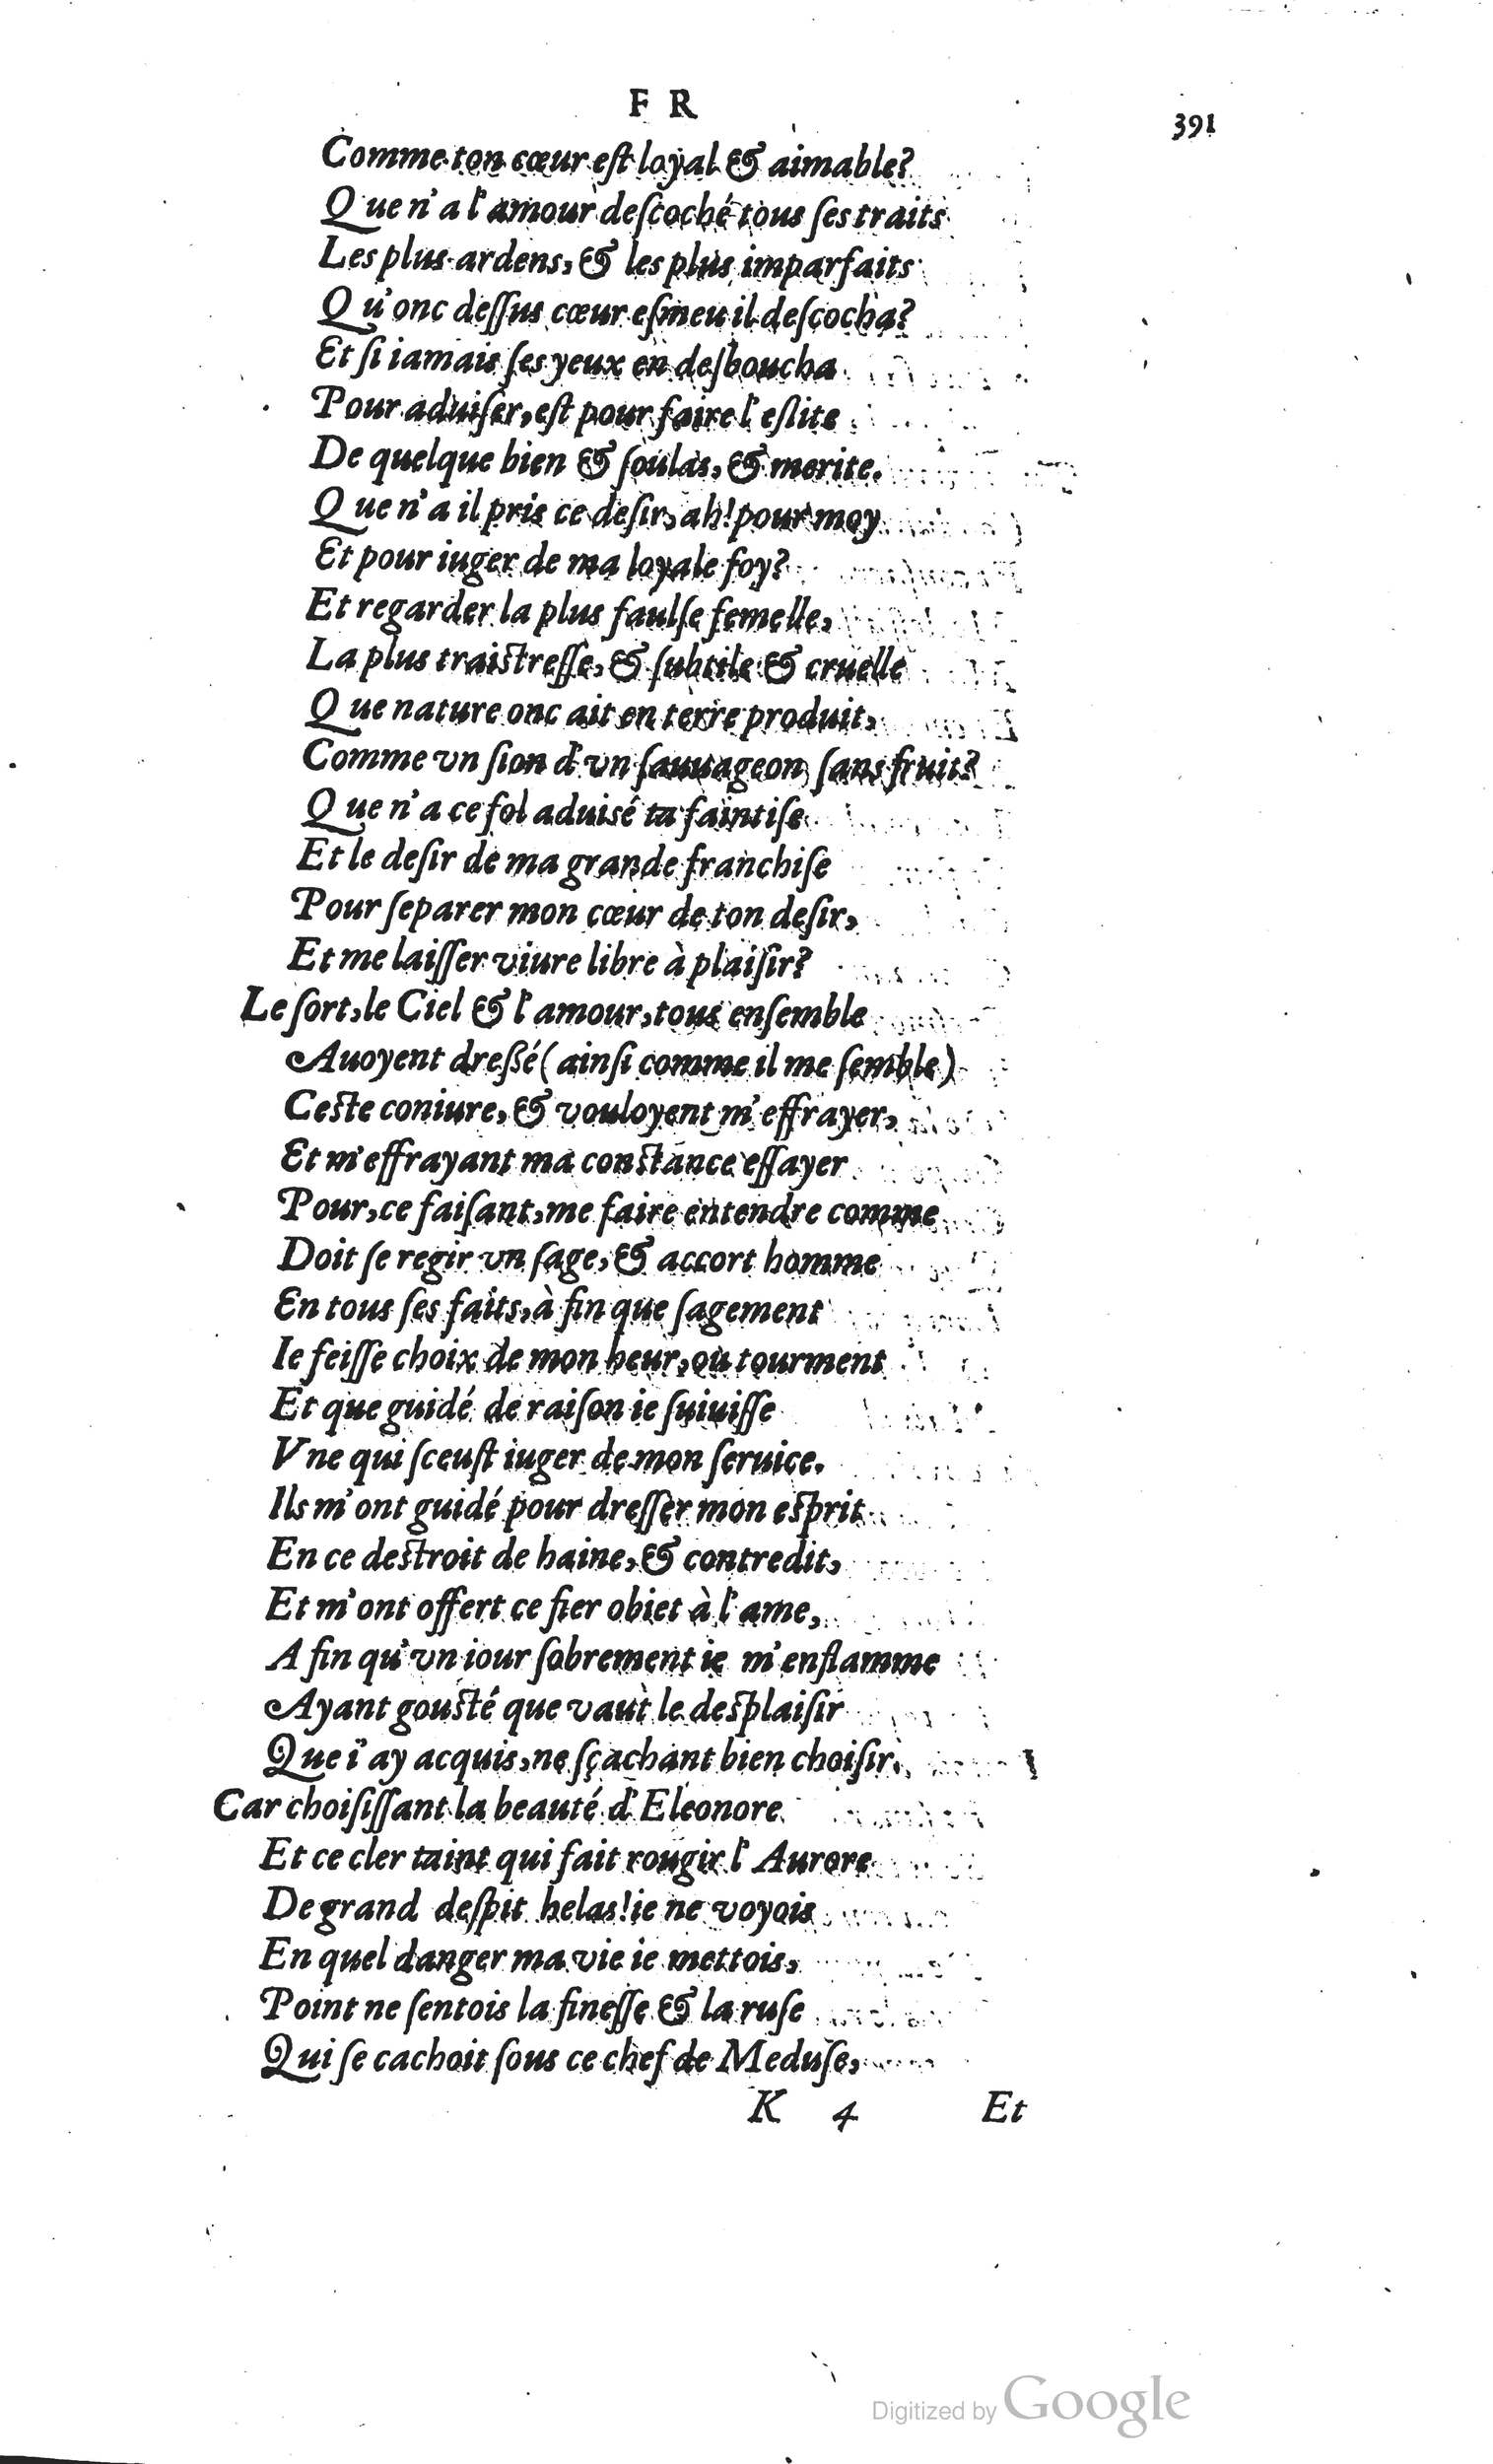 F R
391
Comme ton cœur est loyal & aimable?
Que n'a l'amour descoché tous ses traits
Les plus ardens, & les plus imparfaits
Qu'onc dessus cœur esmeu il descocha?
Et si iamais ses yeux en desboucha
Pour aduiser, est pour faire l'eslite
De quelque bien & soulas, & merite.
Que n'a il pris ce desir, ah! pour moy
Et pour iuger de ma loyale foy?
Et regarder la plus faulse femelle,
La plus traistresse, & subtile & cruelle
Que nature onc ait en terre produit,
Comme vn sion d'vn sauuageon sans fruit?
Que n'a ce fol aduisé ta faintise
Et le desir de ma grande franchise
Pour separer mon cœur de ton desir,
Et me laisser viure libre à plaisir?
Le sort, le Ciel & l'amour, tous ensemble
Auoyent dreßé (ainsi comme il me semble)
Ceste coniure, & vouloyent m'effrayer,
Et m'effrayant ma constance essayer
Pour, ce faisant, me faire entendre comme
Doit se regir vn sage, & accort homme
En tous ses faits, à fin que sagement
Ie feisse choix de mon heur, ou tourment
Et que guidé de raison ie suiuisse
Vne qui sceust iuger de mon seruice.
Ils m'ont guidé pour dresser mon esprit
En ce destroit de haine, & contredit,
Et m'ont offert ce fier obiet à l'ame,
A fin qu'vn iour sobrement ie m'enflamme
Ayant gousté que vaut le desplaisir
Que i'ay acquis, ne sçachant bien choisir.
Car choisissant la beauté d'Eleonore
Et ce cler taint qui fait rougir l'Aurore
De grand despit helas! ie ne voyois
En quel danger ma vie ie mettois,
Point ne sentois la finesse & la ruse
Qui se cachoit sous ce chef de Meduse,
K 4 Et
Digitized by Google